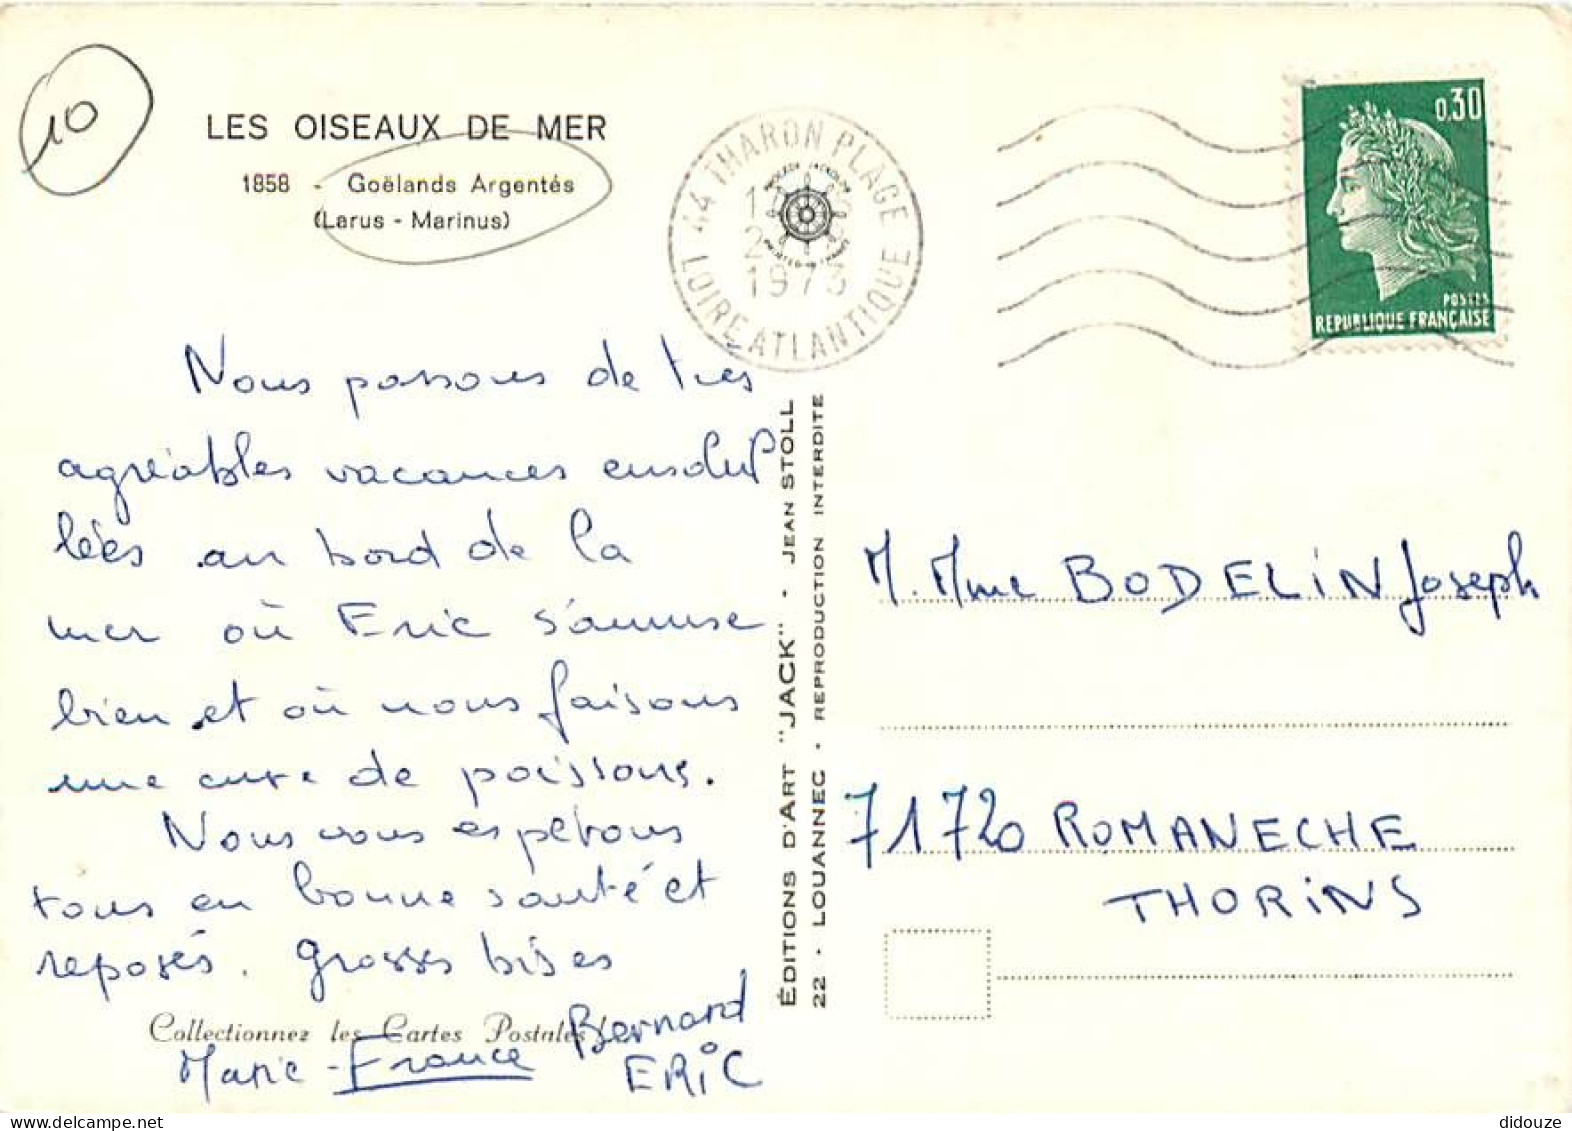 10
LES OISEAUX DE MER
1858 - Goëlands Argentés
(Larus - Marinus)
44 THARON PLAGE
1973
LOIRE ATLANTIQUE
0,30
POSTES
REPUBLIQUE FRANÇAISE
Nous passons de très
agréables vacances ensoleil
lées au bord de la
mer où Eric s'amuse
bien et où nous faisons
une cure de poissons.
Nous vous espérons
tous en bonne santé et
reposés. Grosses bises
Collectionnez les Cartes Postales !
Marie-France Bernard
ERIC
ÉDITIONS D'ART "JACK" - JEAN STOLL
22 - LOUANNEC - REPRODUCTION INTERDITE
M. Mme BODELIN Joseph
71720 ROMANECHE
THORINS
didouze